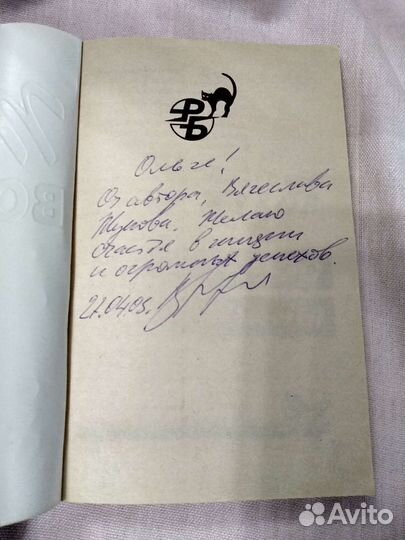 РБ
Ольге!
От автора, Вячеслава
Жукова. Желаю
счастья в жизни
и огромных успехов.
27.04.05.
Avito